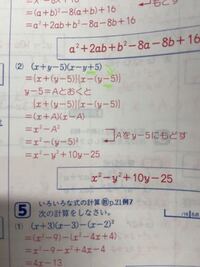 =(a+b)²-8(a+b)+16
もどす
=a²+2ab+b²-8a-8b+16
a²+2ab+b²-8a-8b+16
(2) (x+y-5)(x-y+5)
={x+(y-5)}{x-(y-5)}
y-5=Aとおくと
{x+(y-5)}{x-(y-5)}
=(x+A)(x-A)
=x²-A²
=x²-(y-5)²
Aをy-5にもどす
=x²-y²+10y-25
x²-y²+10y-25
5 いろいろな式の計算 p.21例7
次の計算をしなさい。
(1) (x+3)(x-3)-(x-2)²
=(x²-9)-(x²-4x+4)
=x²-9-x²+4x-4
=4x-13